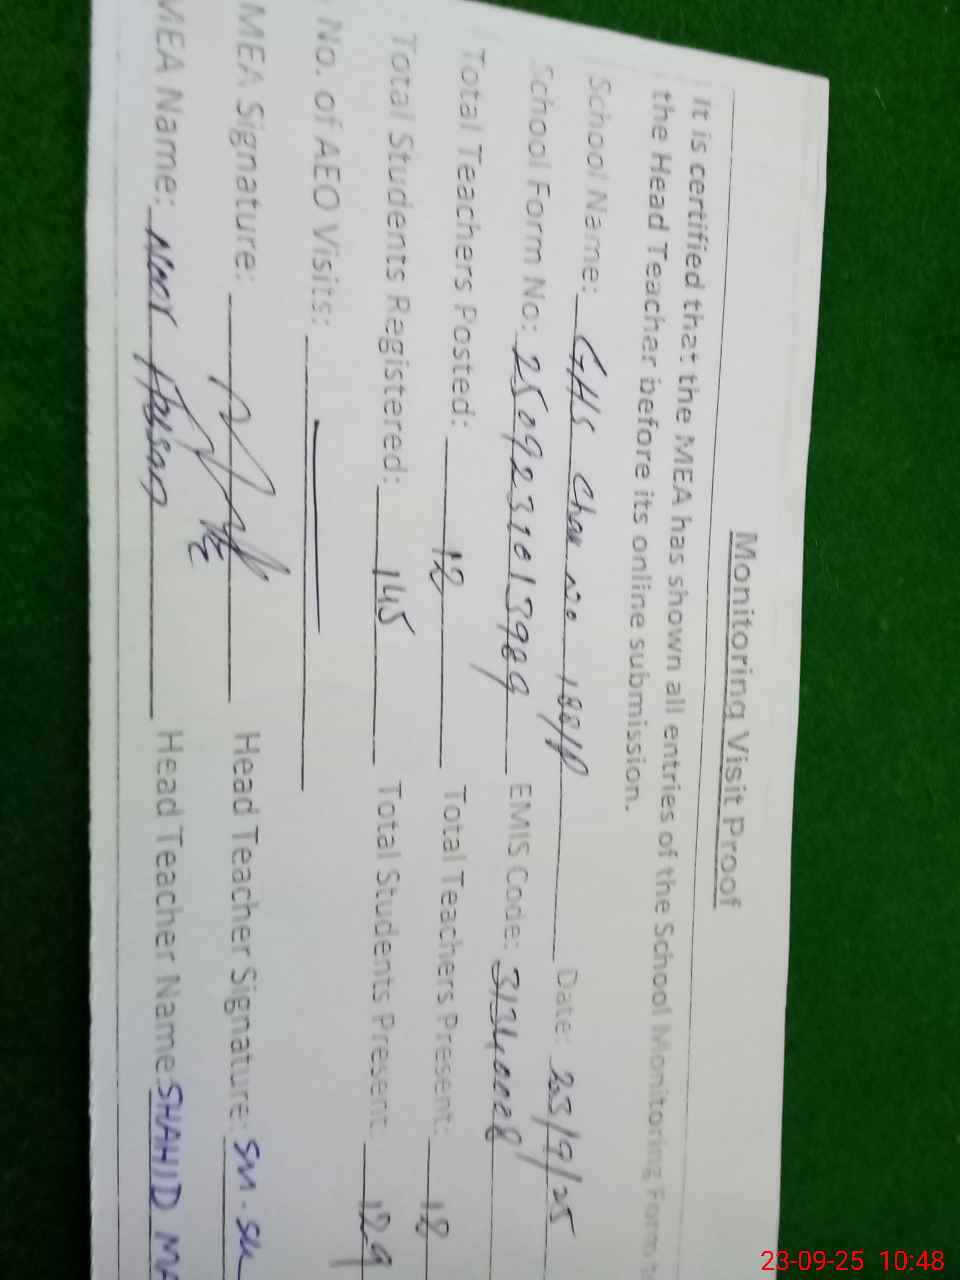 Monitoring Visit Proof
It is certified that the MEA has shown all entries of the School Monitoring Form to
the Head Teacher before its online submission.
School Name: GHS Chak No 188/P Date: 23/9/25
School Form No: 2509231013989 EMIS Code: 31340008
Total Teachers Posted: 12 Total Teachers Present: 12
Total Students Registered: 145 Total Students Present: 129
No. of AEO Visits:
MEA Signature: Head Teacher Signature:
MEA Name: Head Teacher Name: SHAHID MA
23-09-25 10:48